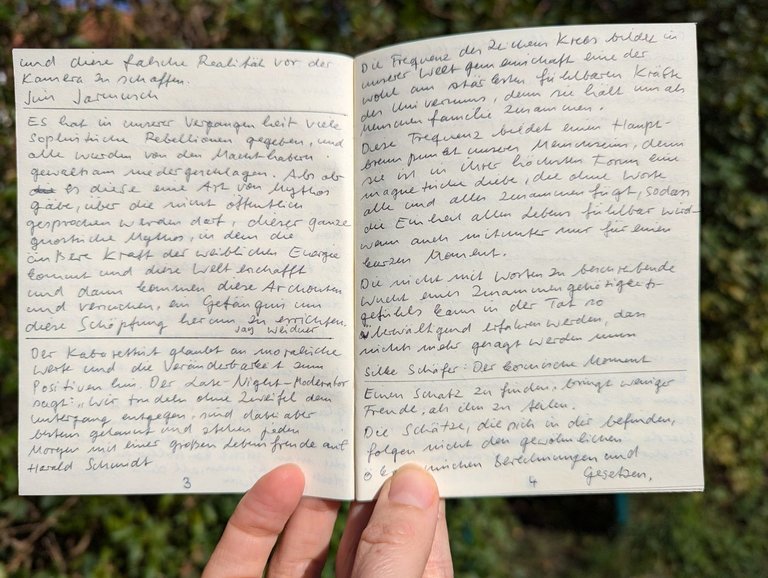 und diese falsche Realität vor der
Kamera zu schaffen.
Jim Jarmusch
Es hat in unserer Vergangenheit viele
sophistische Rebellionen gegeben, und
alle wurden von den Machthabern
gewaltsam niedergeschlagen. Als ob
es diese eine Art von Mythos
gäbe, über die nicht öffentlich
gesprochen werden darf, dieser ganze
gnostische Mythos, in dem die
äußere Kraft der weiblichen Energie
kommt und diese Welt erschafft
und dann kommen diese Archonten
und versuchen, ein Gefängnis um
diese Schöpfung herum zu errichten.
Jay Weidner
Der Kabarettist glaubt an moralische
Werte und die Veränderbarkeit zum
Positiven hin. Der Late-Night-Moderator
sagt: „Wir trudeln ohne Zweifel dem
Untergang entgegen, sind dabei aber
bestens gelaunt und stehen jeden
Morgen mit einer großen Lebensfreude auf
Harald Schmidt
3
Die Frequenz des Zeichens Krebs bildet in
unserer Weltgemeinschaft eine der
wohl am stärksten fühlbaren Kräfte
des Universums, denn sie hält uns als
Menschenfamilie zusammen.
Diese Frequenz bildet einen Haupt-
brennpunkt unseres Menschseins, denn
sie ist in ihrer höchsten Form eine
magnetische Liebe, die ohne Worte
alle und alles zusammenfügt, sodass
die Einheit allen Lebens fühlbar wird -
wenn auch mitunter nur für einen
kurzen Moment.
Die nicht mit Worten zu beschreibende
Wucht eines Zusammengehörigkeits-
gefühls kann in der Tat so
überwältigend erfahren werden, dass
nichts mehr gesagt werden muss
Silke Schäfer: Der kosmische Moment
Einen Schatz zu finden, bringt weniger
Freude, als ihn zu teilen.
Die Schätze, die sich in dir befinden,
folgen nicht den gewöhnlichen
Berechnungen und
Gesetzen.
4